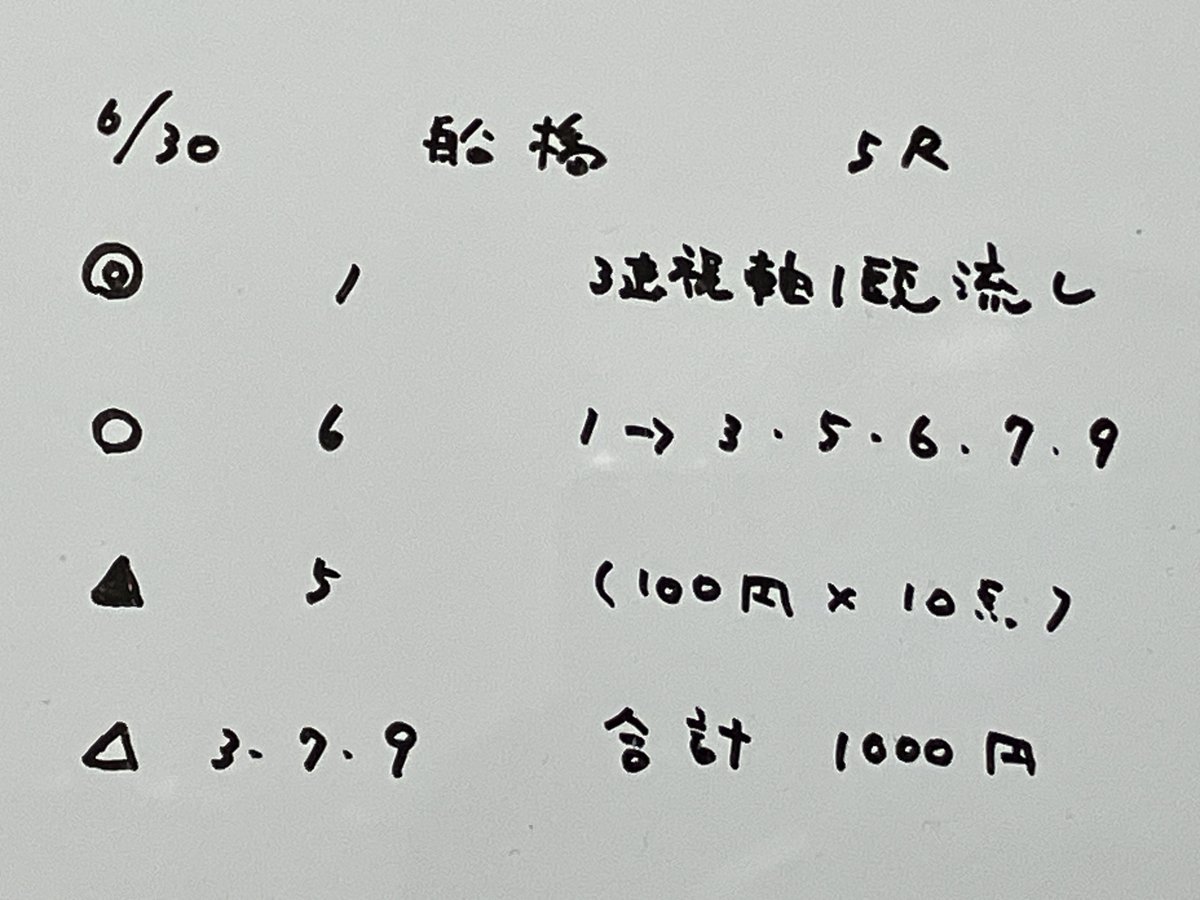 6/30 船橋 5R
◎ 1 3連複軸1頭流し
○ 6 1→3・5・6・7・9
▲ 5 (100円×10点)
△ 3・7・9 合計 1000円